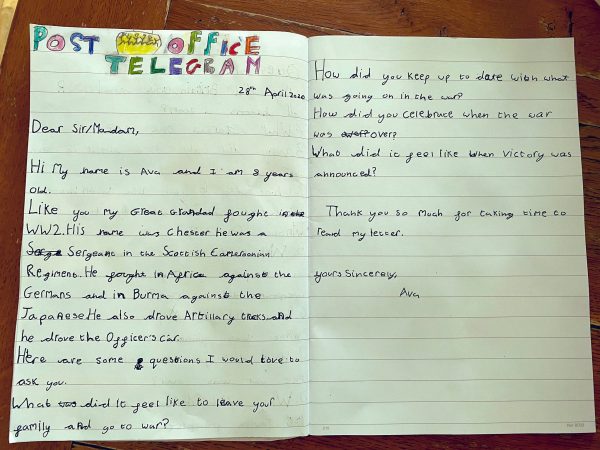 POST OFFICE
TELEGRAM
28th April 2020
Dear Sir/Mandam,
Hi My name is Ava and I am 8 years
old.
Like you my Great Grandad fought in the
WW2. His name was Chester he was a
Sergeant in the Scottish Cameronian
Regiment. He fought in Africa against the
Germans and in Burma against the
Japanese. He also drove Artillary trcks and
he drove the Officer's car.
Here are some questions I would love to
ask you.
What did it feel like to leave your
family and go to war?
How did you keep up to date with what
was going on in the war?
How did you celebrate when the war
was over?
What did it feel like when victory was
announced?
Thank you so much for taking time to
read my letter.
yours Sincerely,
Ava